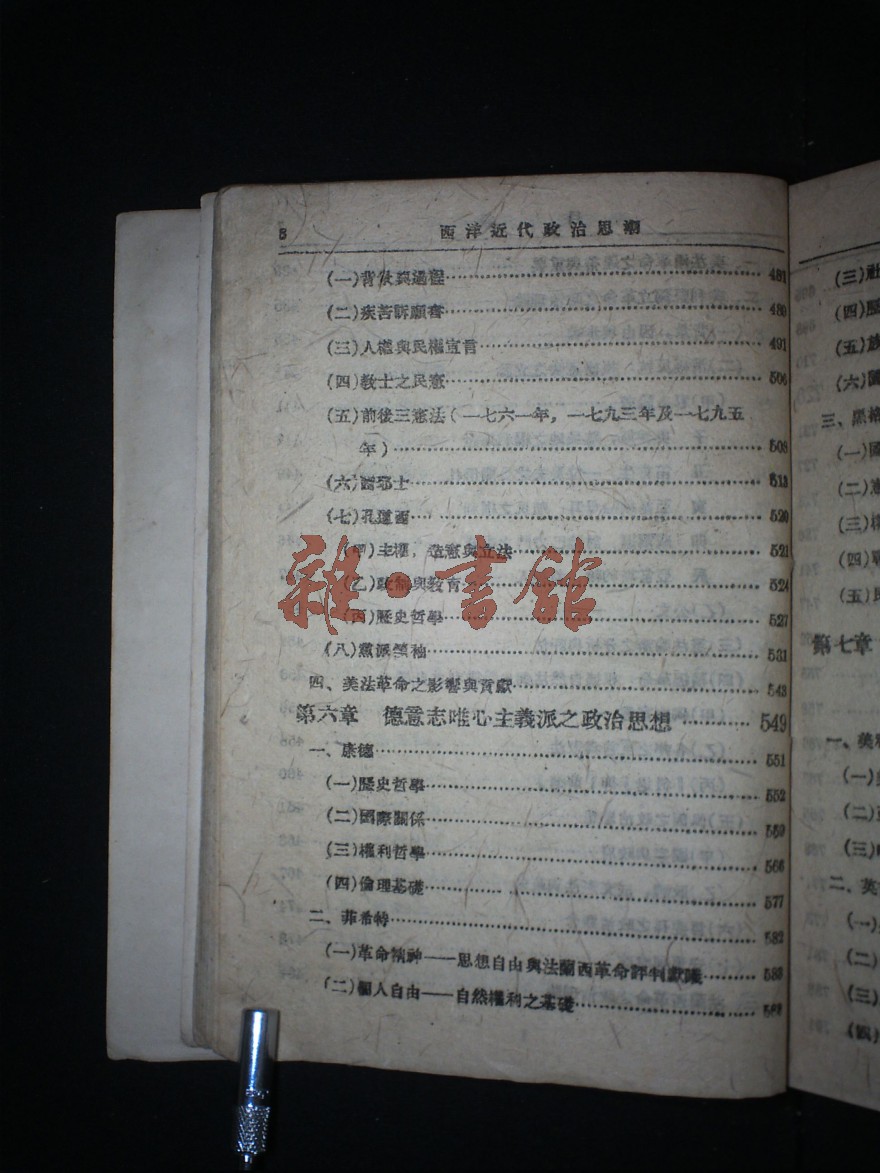 8 西洋近代政治思潮
(一)背景與過程 481
(二)疾苦訴願書 489
(三)人權與民權宣言 491
(四)教士之民憲 506
(五)前後三憲法(一七六一年,一七九三年及一七九五
年) 508
(六)西耶士 513
(七)孔道西 520
(甲)主權,造憲與立法 521
(乙)政制與教育 524
(丙)歷史哲學 527
(八)黨派領袖 531
四、美法革命之影響與貢獻 543
第六章 德意志唯心主義派之政治思想 549
一、康德 551
(一)歷史哲學 552
(二)國際關係 559
(三)權利哲學 566
(四)倫理基礎 577
二、菲希特 582
(一)革命精神——思想自由與法蘭西革命評判
(二)個人自由——自然權利之基礎
雜·書館
(三)社
(四)歷
(五)族
(六)國
三、黑格
(一)國
(二)憲
(三)權
(四)戰
(五)民
第七章
一、美
(一)
(二)
(三)
二、英
(一)
(二)
(三)
(四)